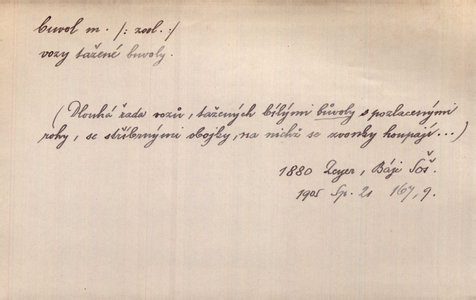 buvol m. /: zool. :/
vozy tažené buvoly.
(Dlouhá řada vozů, tažených bílými bůvoly s pozlacenými
rohy, se stříbrnými obojky, na nichž se zvonky houpají...)
1880 Zeyer, Báje Šoš.
1905 Sp. 21 167, 9.